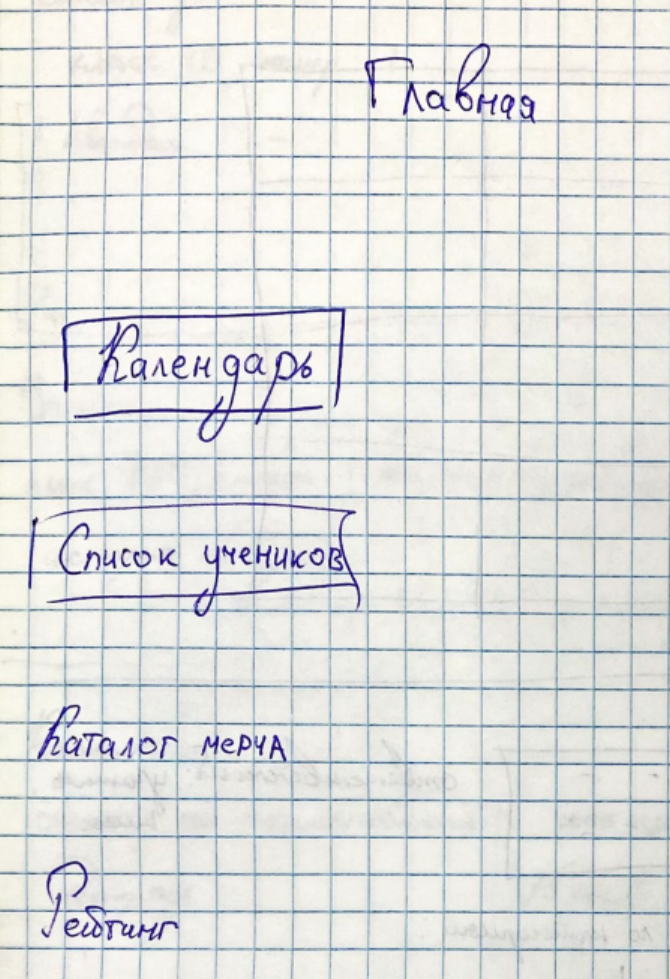 Главная
Календарь
Список учеников
Каталог мерча
Рейтинг